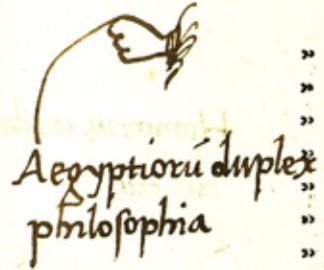 Aegyptiorú duplex
philosophia